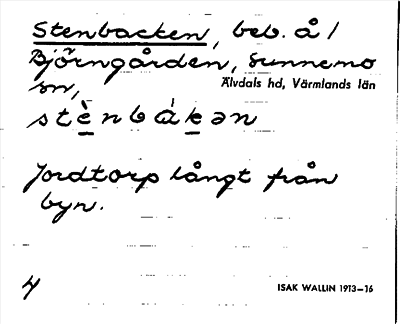 Stenbacken, beb. å /
Björngården, Sunnemo
sn, Älvdals hd, Värmlands län
stènbákən
Jordtorp långt från
byn.
4 ISAK WALLIN 1913–16